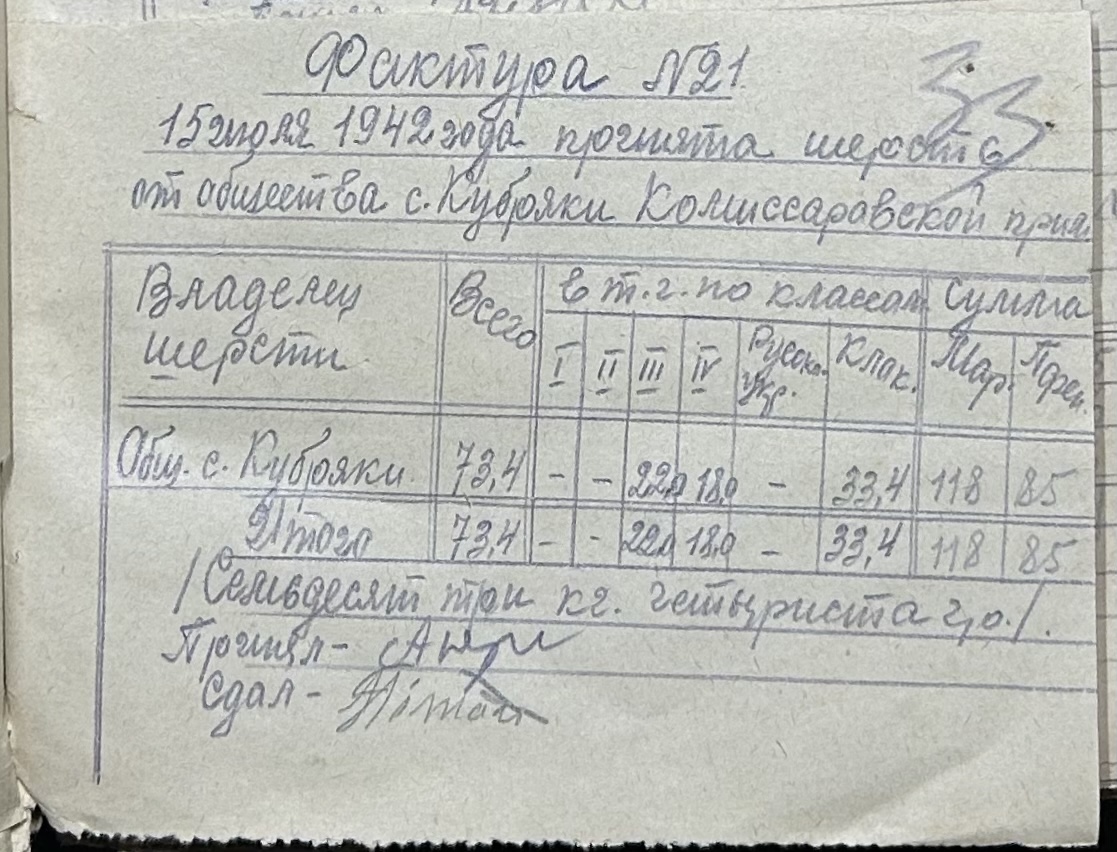 33
Фактура №21.
15 июля 1942 года принята шерсть
от общества с. Кубряки Комиссаравской прия.
Владелец шерсти Всего в т.г. по классам Сумма
I II III IV Русско. Укр. Клак. Мар. Пфен.
Общ. с. Кубряки 73,4 - - 22,0 18,0 - 33,4 118 85
Итого 73,4 - - 22,0 18,0 - 33,4 118 85
/Семьдесят три кг. четыриста гр./.
Принял-
Сдал-